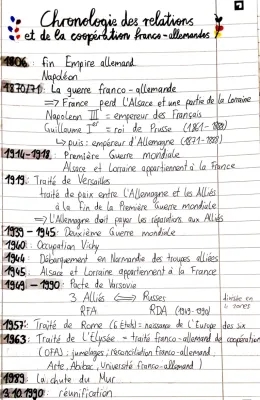 Chronologie des relations
et de la coopération franco-allemandes
1806: fin Empire allemand
Napoléon
1870/71: La guerre franco-allemande
=> France perd l'Alsace et une partie de la Lorraine
Napoleon III = empereur des Français
Guillaume 1er = roi de Prusse (1861-1888)
↳ puis: empéreur d'Allemagne (1871-1888)
1914-1918: Première Guerre mondiale
Alsace et Lorraine appartiennent à la France
1919: Traité de Versailles
traité de paix entre l'Allemagne et les Alliés
à la fin de la Première Guerre mondiale
=> l'Allemagne doit payer les réparations aux Alliés
1939-1945: Deuxième Guerre mondiale
1940: Occupation Vichy
1944: Débarquement en Normandie des troupes alliées
1945: Alsace et Lorraine appartiennent à la France
1949-1990: Pacte de Varsovie
3 Alliés <=> Russes divisée en
RFA RDA (1949-1990) 4 zones
1957: Traité de Rome (6 États): naissance de l'Europe des six
1963: Traité de L'Elysée = traité franco-allemand de coopération
(OFAJ, jumelages, réconciliation franco-allemand,
Arte, Abibac, Université franco-allemand)
1989: La chute du Mur
3.10.1990: réunification